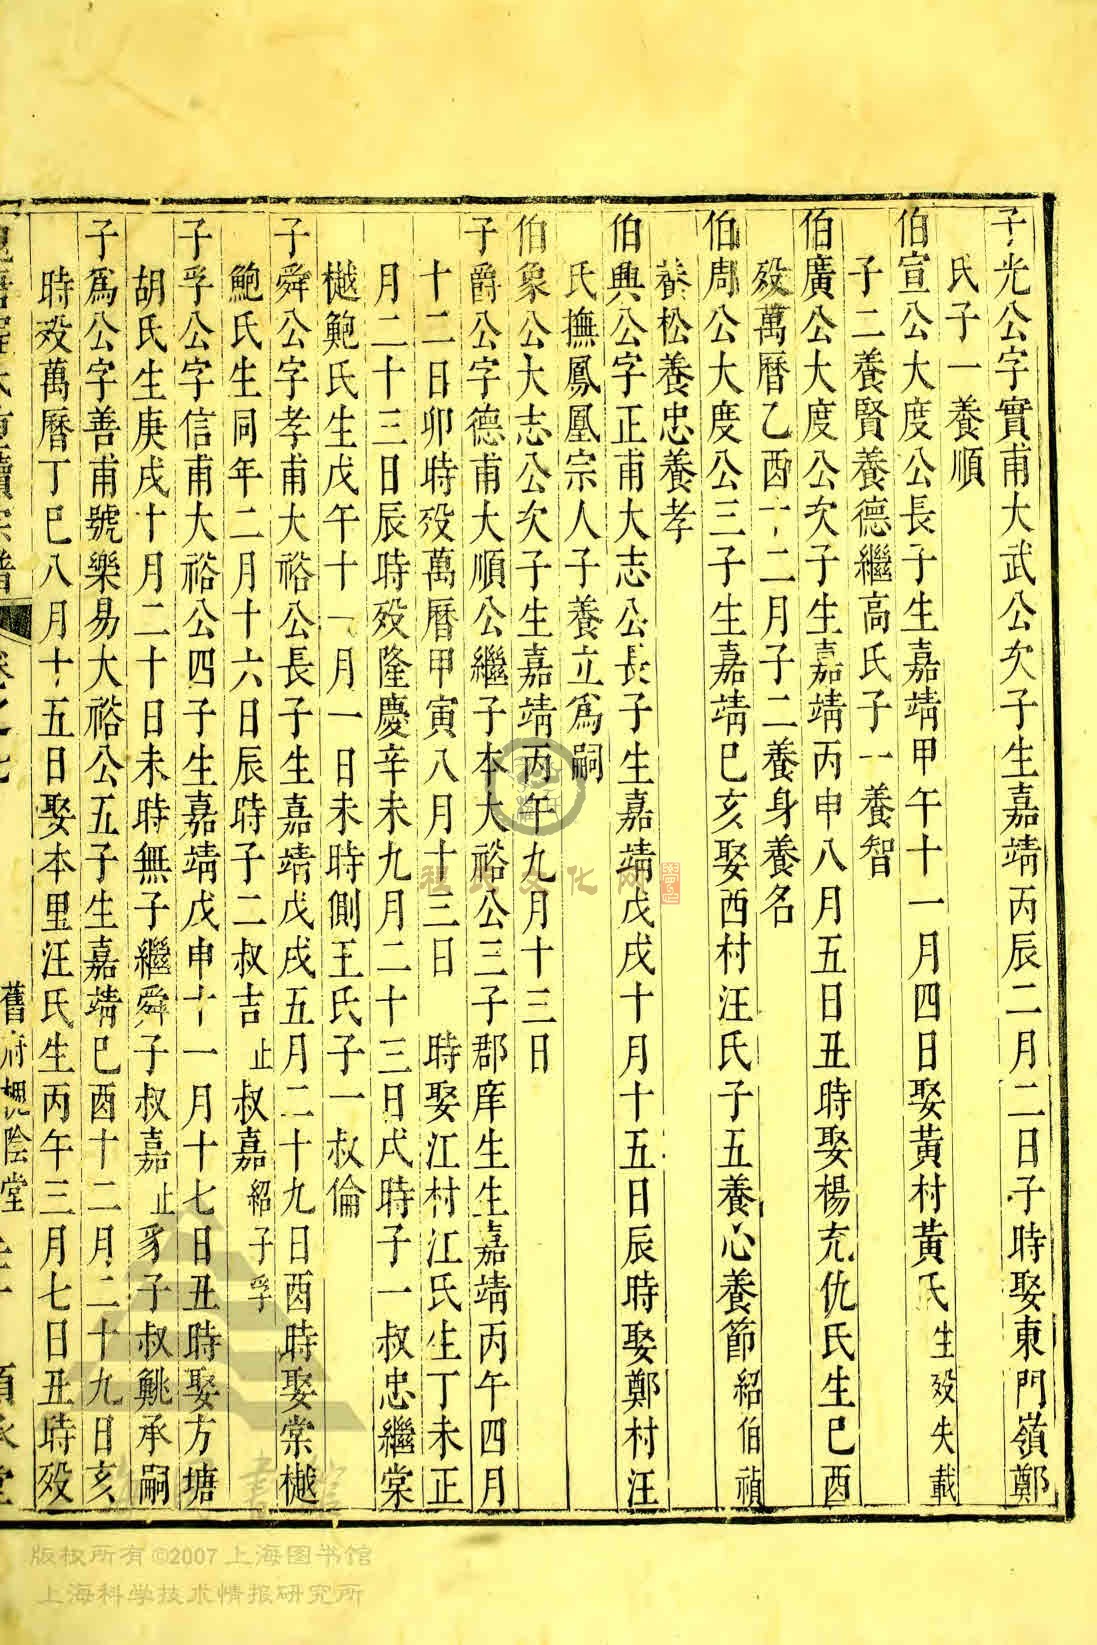 子光公字實甫大武公次子生嘉靖丙辰二月二日子時娶東門嶺鄭
氏子一養順
伯宣公大度公長子生嘉靖甲午十一月四日娶黃村黃氏生歿失載
子二養賢養德繼高氏子一養智
伯廣公大度公次子生嘉靖丙申八月五日丑時娶楊充仇氏生巳酉
歿萬曆乙酉十二月子二養身養名
伯周公大度公三子生嘉靖巳亥娶西村汪氏子五養心養節紹伯禎
養松養忠養孝
伯興公字正甫大志公長子生嘉靖戊戌十月十五日辰時娶鄭村汪
氏撫鳳凰宗人子養立爲嗣
伯象公大志公次子生嘉靖丙午九月十三日
子爵公字德甫大順公繼子本大裕公三子郡庠生生嘉靖丙午四月
十二日卯時歿萬曆甲寅八月十三日 時娶江村江氏生丁未正
月二十三日辰時歿隆慶辛未九月二十三日戌時子一叔忠繼棠
樾鮑氏生戊午十一月一日未時側王氏子一叔倫
子舜公字孝甫大裕公長子生嘉靖戊戌五月二十九日酉時娶棠樾
鮑氏生同年二月十六日辰時子二叔吉止叔嘉紹子孚
子孚公字信甫大裕公四子生嘉靖戊申十一月十七日丑時娶方塘
胡氏生庚戌十月二十日未時無子繼舜子叔嘉止豸子叔鯎承嗣
子爲公字善甫號樂易大裕公五子生嘉靖巳酉十二月二十九日亥
時歿萬曆丁巳八月十五日娶本里汪氏生丙午三月七日丑時歿
舊府槐陰堂
程氏文化网
版权所有©2007上海图书馆
上海科学技术情报研究所